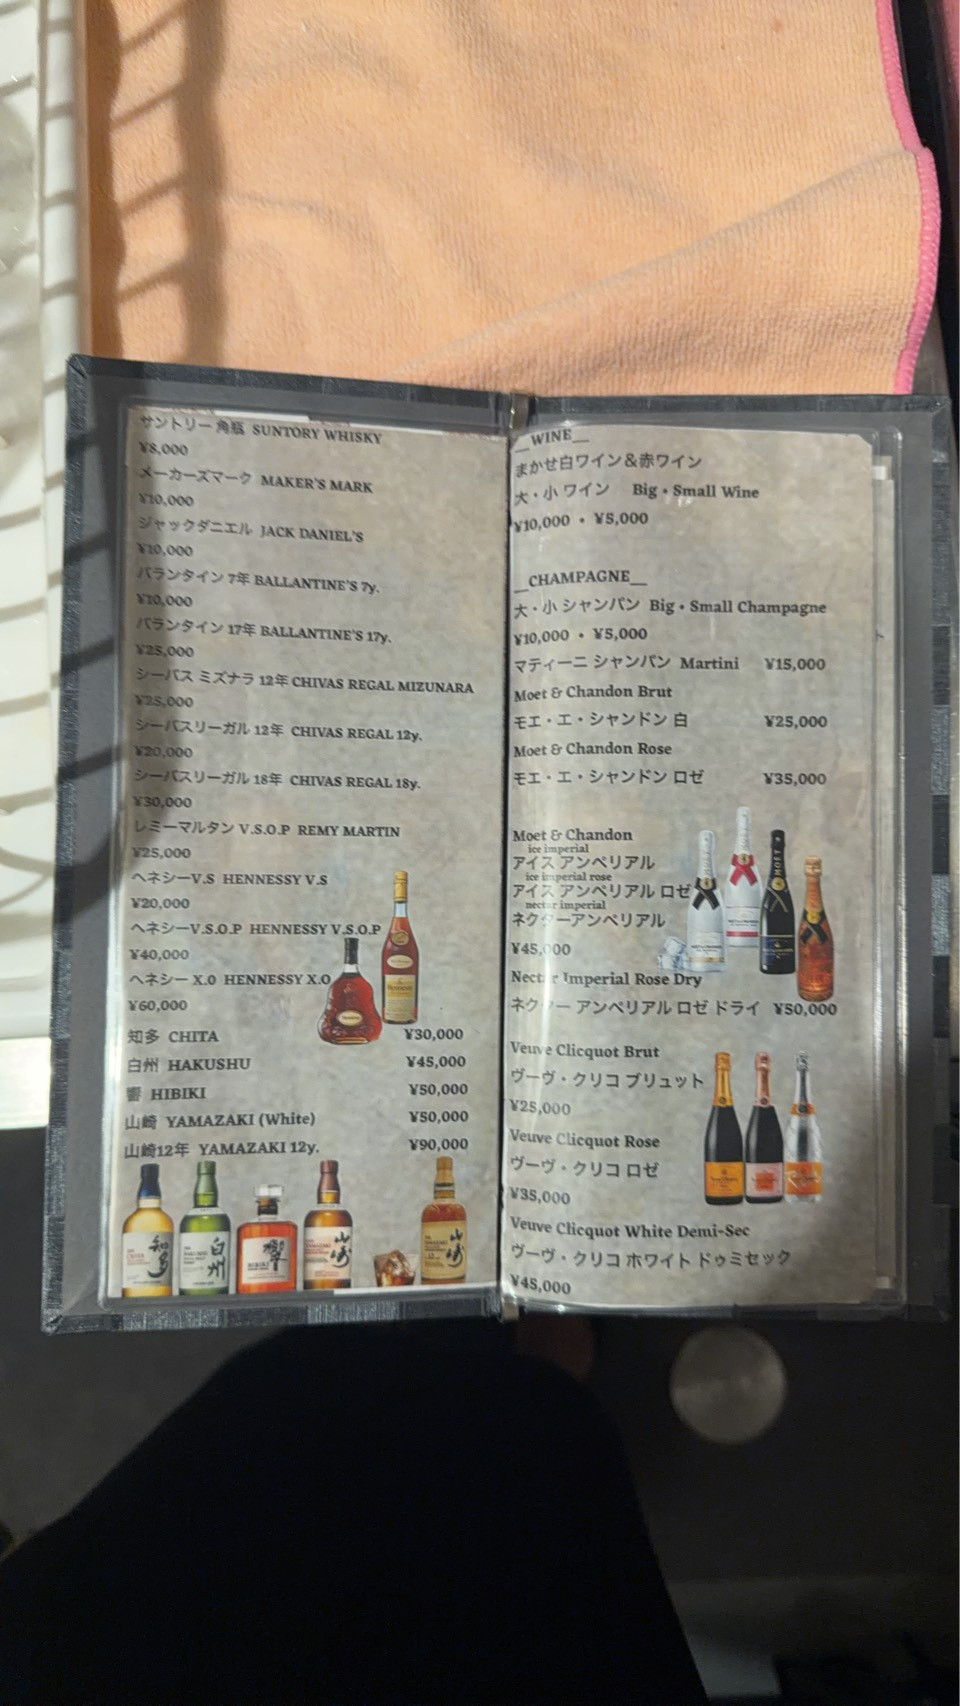 サントリー 角瓶 SUNTORY WHISKY
¥8,000
メーカーズマーク MAKER'S MARK
¥10,000
ジャックダニエル JACK DANIEL'S
¥10,000
バランタイン 7年 BALLANTINE'S 7y.
¥10,000
バランタイン 17年 BALLANTINE'S 17y.
¥25,000
シーバス ミズナラ 12年 CHIVAS REGAL MIZUNARA
¥25,000
シーバスリーガル 12年 CHIVAS REGAL 12y.
¥20,000
シーバスリーガル 18年 CHIVAS REGAL 18y.
¥30,000
レミーマルタン V.S.O.P REMY MARTIN
¥25,000
ヘネシーV.S HENNESSY V.S
¥20,000
ヘネシーV.S.O.P HENNESSY V.S.O.P
¥40,000
ヘネシー X.O HENNESSY X.O
¥60,000
知多 CHITA ¥30,000
白州 HAKUSHU ¥45,000
響 HIBIKI ¥50,000
山崎 YAMAZAKI (White) ¥50,000
山崎12年 YAMAZAKI 12y. ¥90,000
知多
白州
響
山崎
山崎
__WINE__
まかせ白ワイン＆赤ワイン
大・小 ワイン Big • Small Wine
¥10,000 • ¥5,000
__CHAMPAGNE__
大・小 シャンパン Big • Small Champagne
¥10,000 • ¥5,000
マティーニ シャンパン Martini ¥15,000
Moet & Chandon Brut
モエ・エ・シャンドン 白 ¥25,000
Moet & Chandon Rose
モエ・エ・シャンドン ロゼ ¥35,000
Moet & Chandon
ice imperial
アイス アンペリアル
ice imperial rose
アイス アンペリアル ロゼ
nectar imperial
ネクターアンペリアル
¥45,000
Nectar Imperial Rose Dry
ネクター アンペリアル ロゼ ドライ ¥50,000
Veuve Clicquot Brut
ヴーヴ・クリコ ブリュット
¥25,000
Veuve Clicquot Rose
ヴーヴ・クリコ ロゼ
¥35,000
Veuve Clicquot White Demi-Sec
ヴーヴ・クリコ ホワイト ドゥミセック
¥45,000